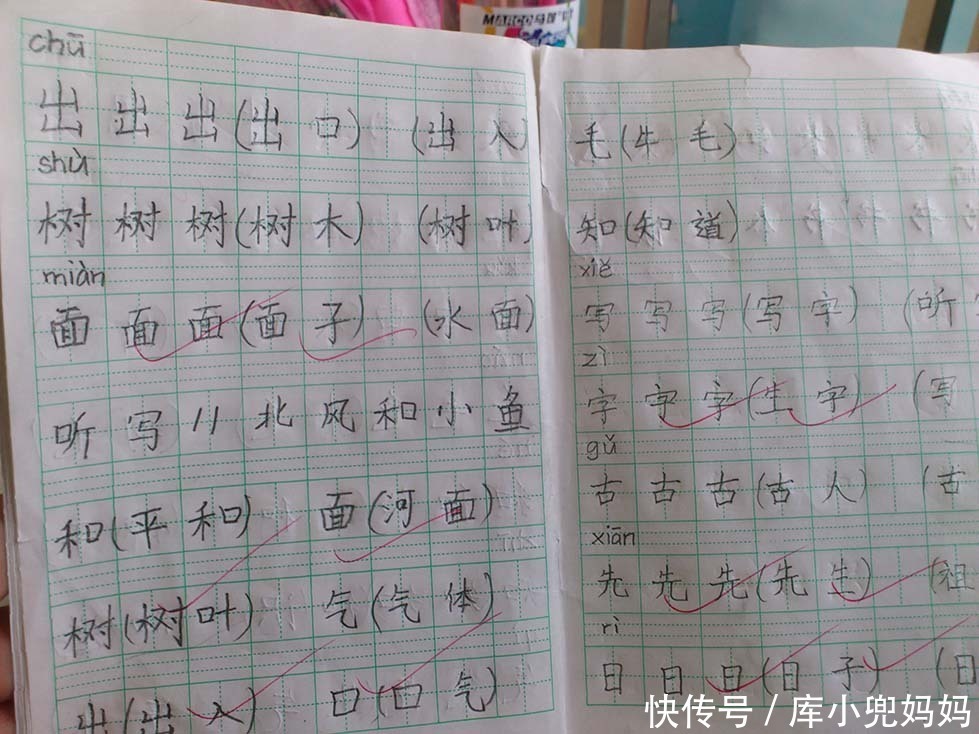 MARCO马可
chū
出 出 出(出 口) (出 入)
shù
树 树 树(树 木) (树 叶)
miàn
面 面 面(面 子) (水 面)
听 写 11 北 风 和 小 鱼
和(平 和) 面(河 面)
树(树 叶) 气(气 体)
出(出 入) 口(口 气)
毛(牛 毛)
知(知 道)
xiě
写 写 写(写 字) (听
zì
字 字 字(生 字) (写
gǔ
古 古 古(古 人) (古
xiān
先 先 先(先 生) (祖
rì
日 日 日(日 子) (日
快传号 / 库小兜妈妈